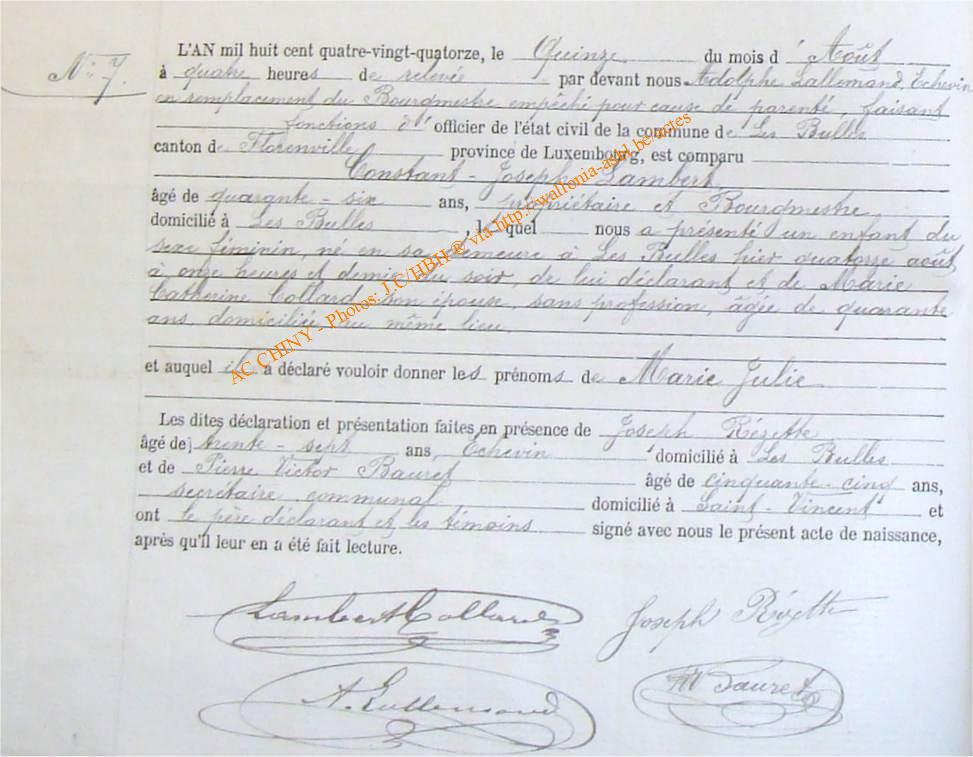 N° 7.
L'AN mil huit cent quatre-vingt-quatorze, le Quinze du mois d' Août
à quatre heures de relevée par devant nous Adolphe Lallemand, Echevin
en remplacement du Bourgmestre empêché pour cause de parenté, faisant
fonctions d' officier de l'état civil de la commune de Les Bulles
canton de Florenville province de Luxembourg, est comparu
Constant-Joseph Lambert,
âgé de quarante-six ans, propriétaire et Bourgmestre,
domicilié à Les Bulles, lequel nous a présenté un enfant du
sexe féminin, né en sa demeure à Les Bulles hier quatorze août
à onze heures et demie du soir, de lui déclarant et de Marie
Catherine Collard son épouse, sans profession, âgée de quarante
ans, domiciliée au même lieu,
et auquel il a déclaré vouloir donner les prénoms de Marie Julie
Les dites déclaration et présentation faites en présence de Joseph Rézette
âgé de trente-sept ans, Echevin domicilié à Les Bulles
et de Pierre Victor Bauret âgé de cinquante-cinq ans,
secrétaire communal domicilié à Saint-Vincent et
ont le père déclarant et les témoins signé avec nous le présent acte de naissance,
après qu'il leur en a été fait lecture.
Lambert Collard
Joseph Rézette
A. Lallemand
Bauret
AC CHINY - Photos: J.C/HBH @ via http://wallonia-asbl.be/actes